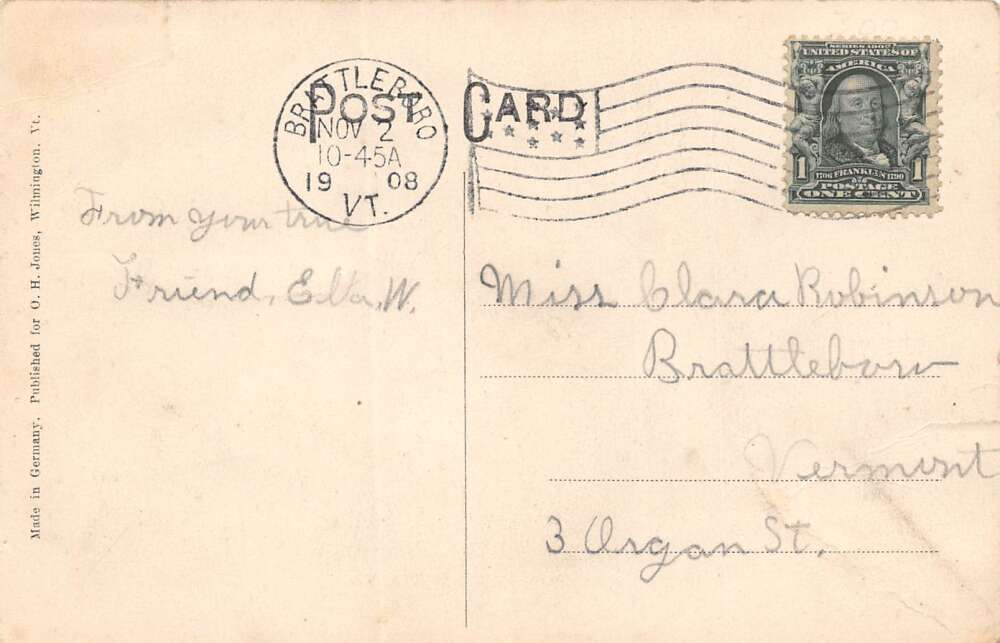 POST CARD
BRATTLEBORO
NOV 2
10-45A
19 08
VT.
SERIES 1902
UNITED STATES OF
AMERICA
1 1
1706 FRANKLIN 1790
POSTAGE
ONE CENT
From your true
Friend, Ella, W.
Miss Clara Robinson
Brattleboro
Vermont
3 Organ St.
Made in Germany. Published for O. H. Jones, Wilmington. Vt.